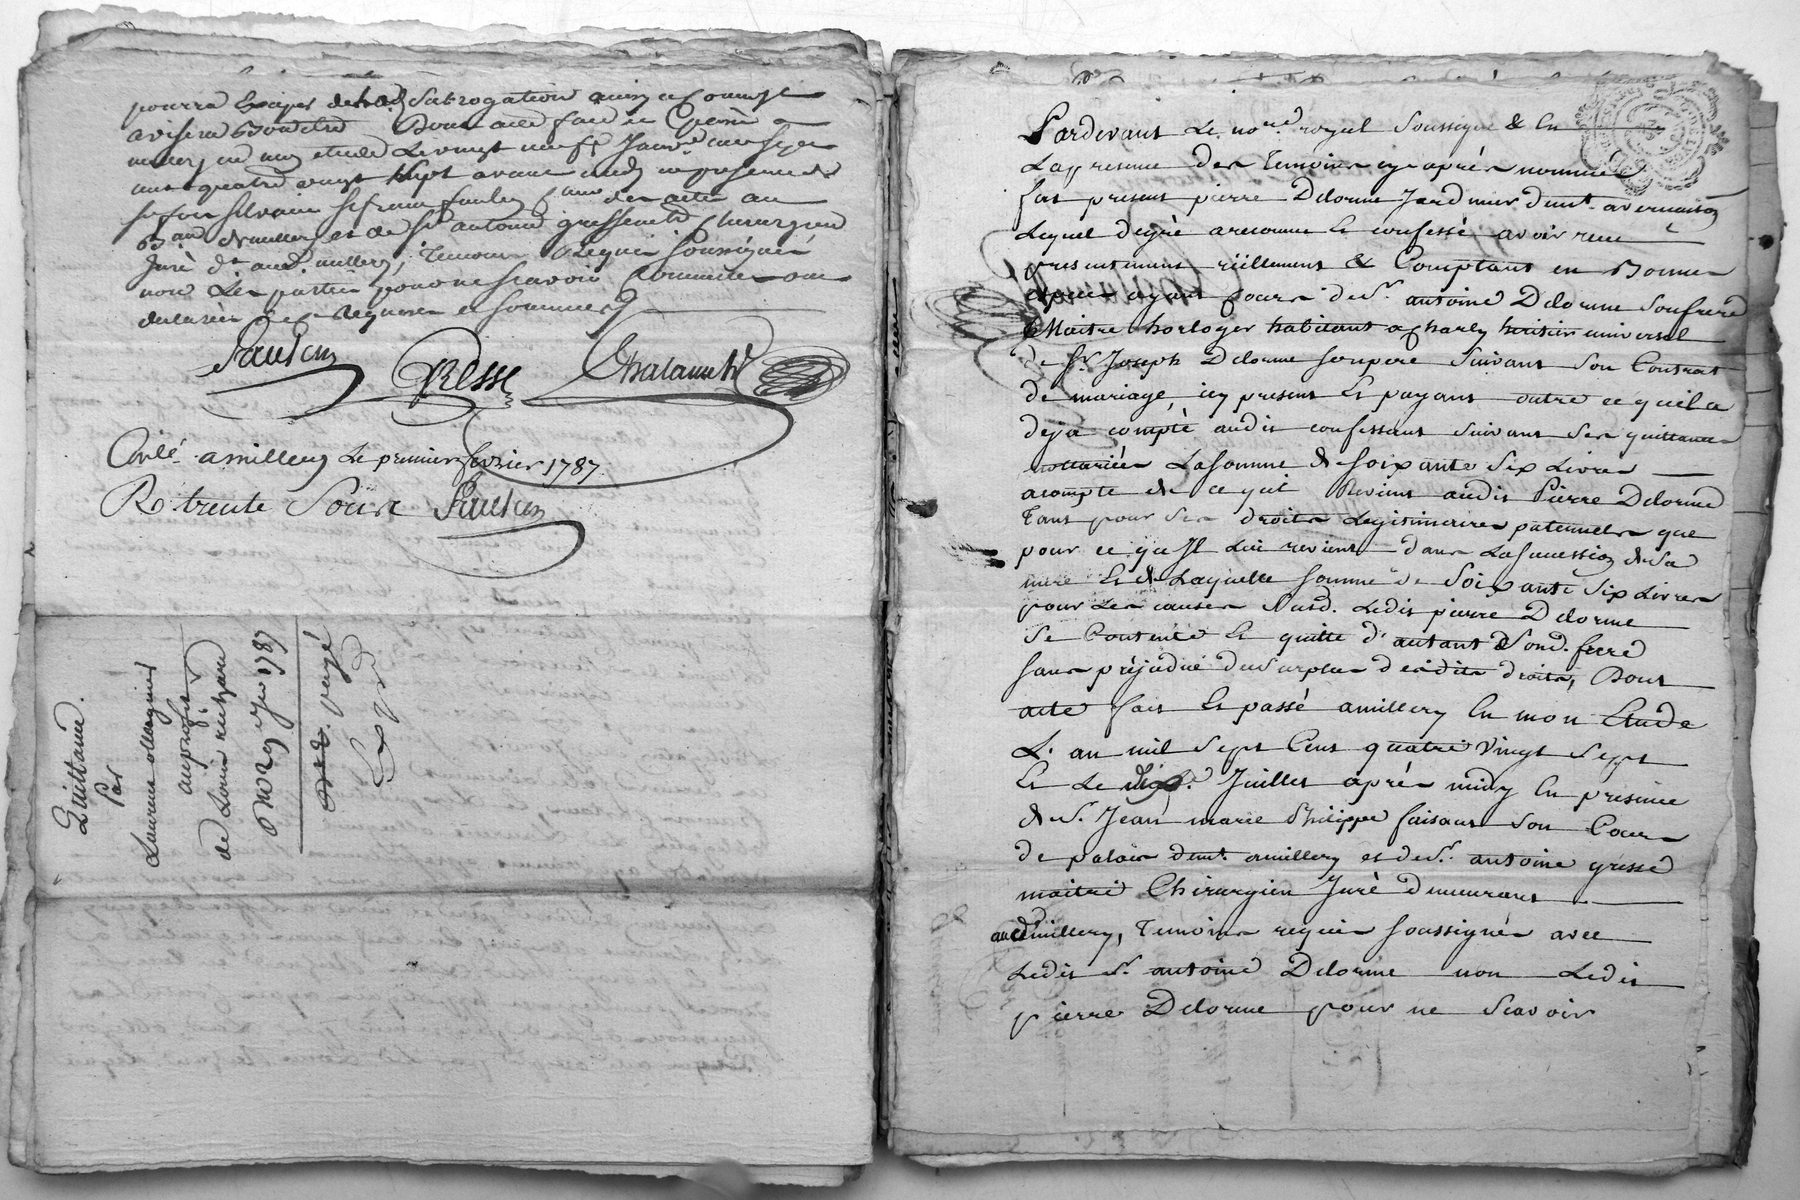 pourra Subrogation
avisera Bon etre Dont acte fait et
en mon etude Le vingt neuf Janv.
quatre vingt sept avant midy en presence de
silvain
et de Sr antoine gresse Chirurgien
Juré dt aud. millery, Temoins Requis soussignés
non Les parties pour ne scavoir
de ce Requises et sommées
Gresse Chalamel
Clé a millery Le premier fevrier 1787.
R. trente Sous
Quittance.
Par
Laurent
au profit
de Louis
Du 29 Jer 1787
Pardevant Le no.re royal Soussigné & En
La presence des Temoins cy aprés nommés
fut present pierre Delorme Jardinier demt. a vernaison
Lequel degré a reconnu Et confessé avoir receu
presentement réellement & Comptant en Bonnes
espéces ayant cours de Sr. antoine Delorme Son frere
Maitre horloger habitant a Charly heritier universel
de Sr. Joseph Delorme son pere Suivant Son Contrat
de mariage, icy present Et payant outre ce qu'il a
deja compté audit confessant Suivant Ses quittances
nottariées La somme de soixante Six Livres
a compte de ce qui Revient audit Pierre Delorme
Tant pour Ses droits Legitimaires paternels que
pour ce qu'Il Lui revient dans La succession de Sa
mere Et de Laquelle somme de Soixante Six Livres
pour Les causes Susd. Ledit pierre Delorme
Se Contente Et quitte d'autant Sond. frere
sans préjudice du Surplus desdits droits, Dont
acte fait Et passé a millery En mon Etude
L'an mil Sept Cent quatre Vingt Sept
Et Le Juillet aprés midy En presence
de Sr. Jean marie Philippe faisant Son Cours
de palais demt. a millery et de Sr. antoine gresse
maitre Chirurgien Juré demeurant
aud millery, Temoins requis soussignés avec
Ledit Sr. antoine Delorme non Ledit
pierre Delorme pour ne Scavoir